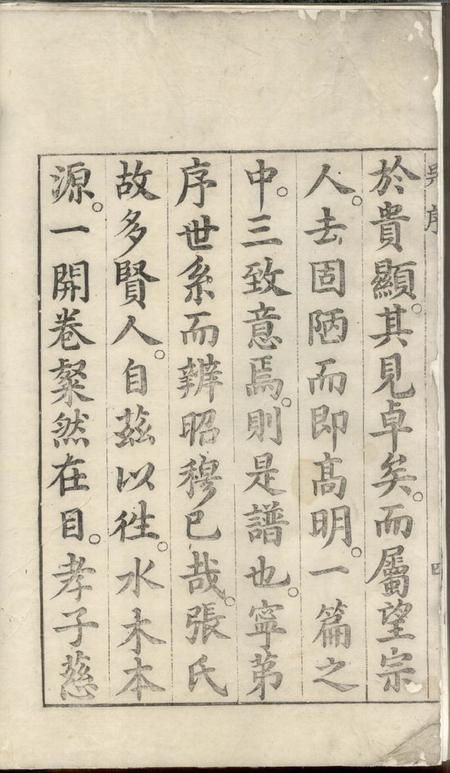 於貴顯。其見卓矣。而屬望宗
人。去固陋而即高明。一篇之
中。三致意焉。則是譜也。寧苐
序世系而辨昭穆已哉。張氏
故多賢人。自茲以徃。水木本
源。一開卷粲然在目。孝子慈